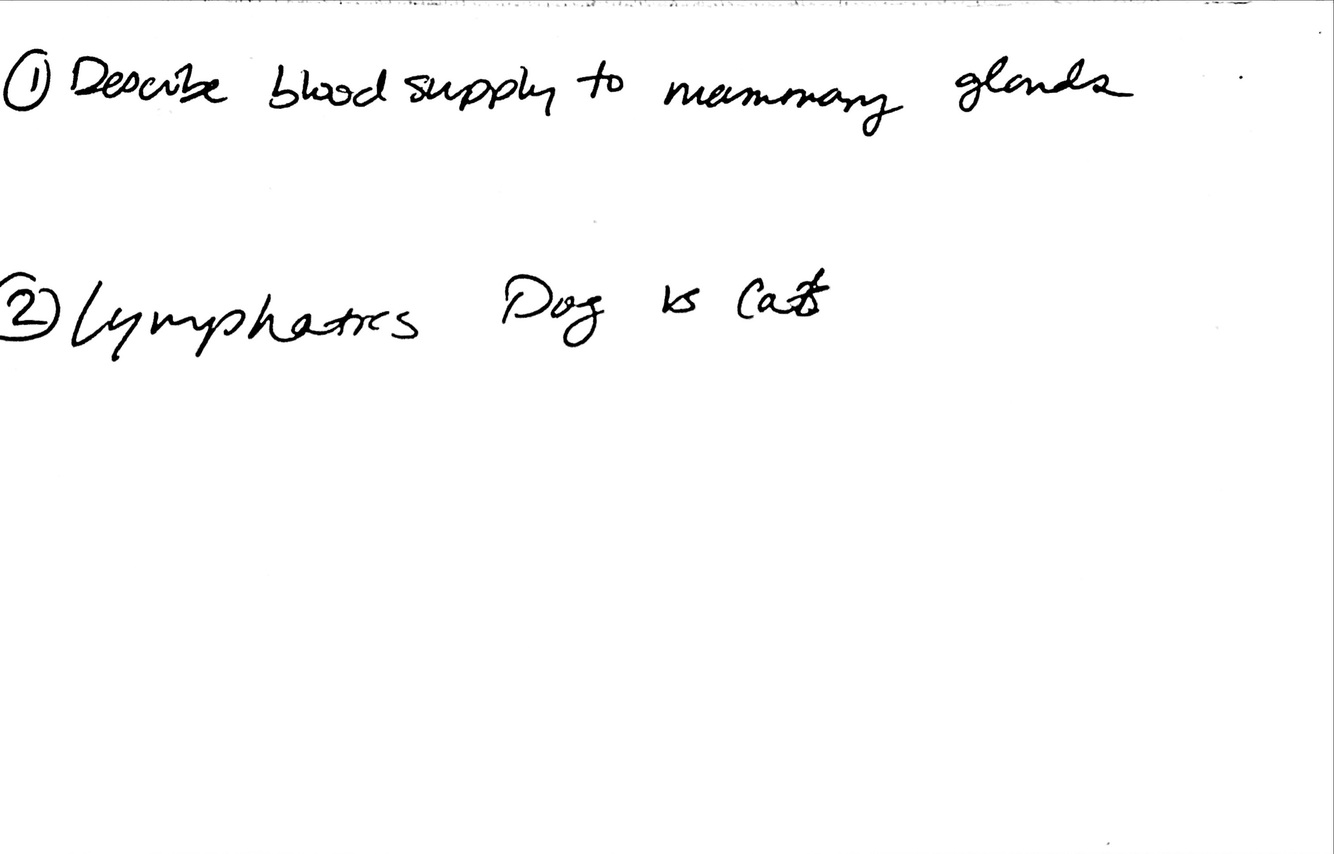 ① Describe blood supply to mammary glands
② Lymphatics Dog vs Cat